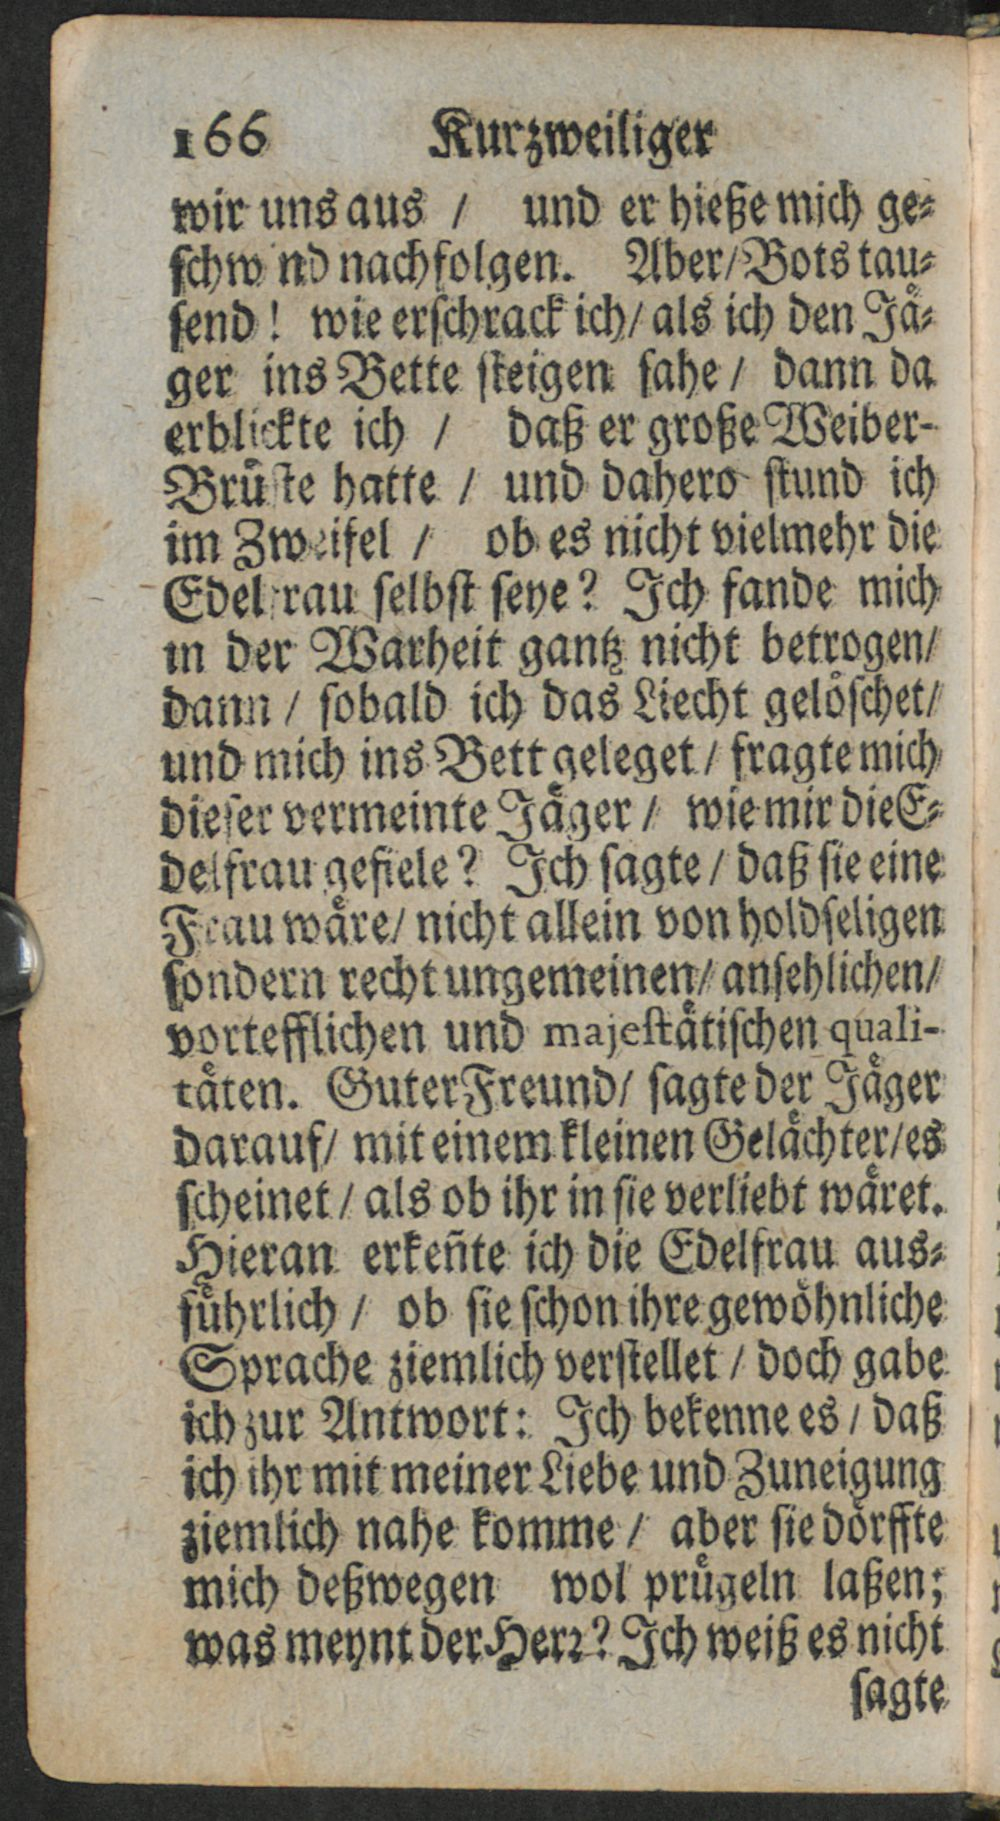 166 Kurzweiliger
wir uns aus / und er hieße mich ge⸗
ſchw nd nachfolgen. Aber/ Bots tau⸗
ſend! wie erſchrack ich/ als ich den Jaͤ⸗
ger ins Bette ſteigen ſahe / dann da
erblickte ich / daß er große Weiber-
Bruͤſte hatte / und dahero ſtund ich
im Zweifel / ob es nicht vielmehr die
Edel rau ſelbſt ſeye? Ich fande mich
in der Warheit gantz nicht betrogen/
dann / ſobald ich das Liecht geloͤſchet/
und mich ins Bett geleget / fragte mich
dieſer vermeinte Jaͤger / wie mir die E⸗
delfrau gefiele? Ich ſagte / daß ſie eine
Frau waͤre/ nicht allein von holdſeligen
ſondern recht ungemeinen/ anſehlichen/
vortefflichen und majeſtaͤtiſchen quali-
taͤten. Guter Freund/ ſagte der Jaͤger
darauf/ mit einem kleinen Gelaͤchter/ es
ſcheinet / als ob ihr in ſie verliebt waͤret.
Hieran erkeñte ich die Edelfrau aus⸗
fuͤhrlich / ob ſie ſchon ihre gewoͤhnliche
Sprache ziemlich verſtellet / doch gabe
ich zur Antwort: Ich bekenne es / daß
ich ihr mit meiner Liebe und Zuneigung
ziemlich nahe komme / aber ſie doͤrffte
mich deßwegen wol pruͤgeln laßen;
was meynt der Herꝛ? Ich weiß es nicht
ſagte